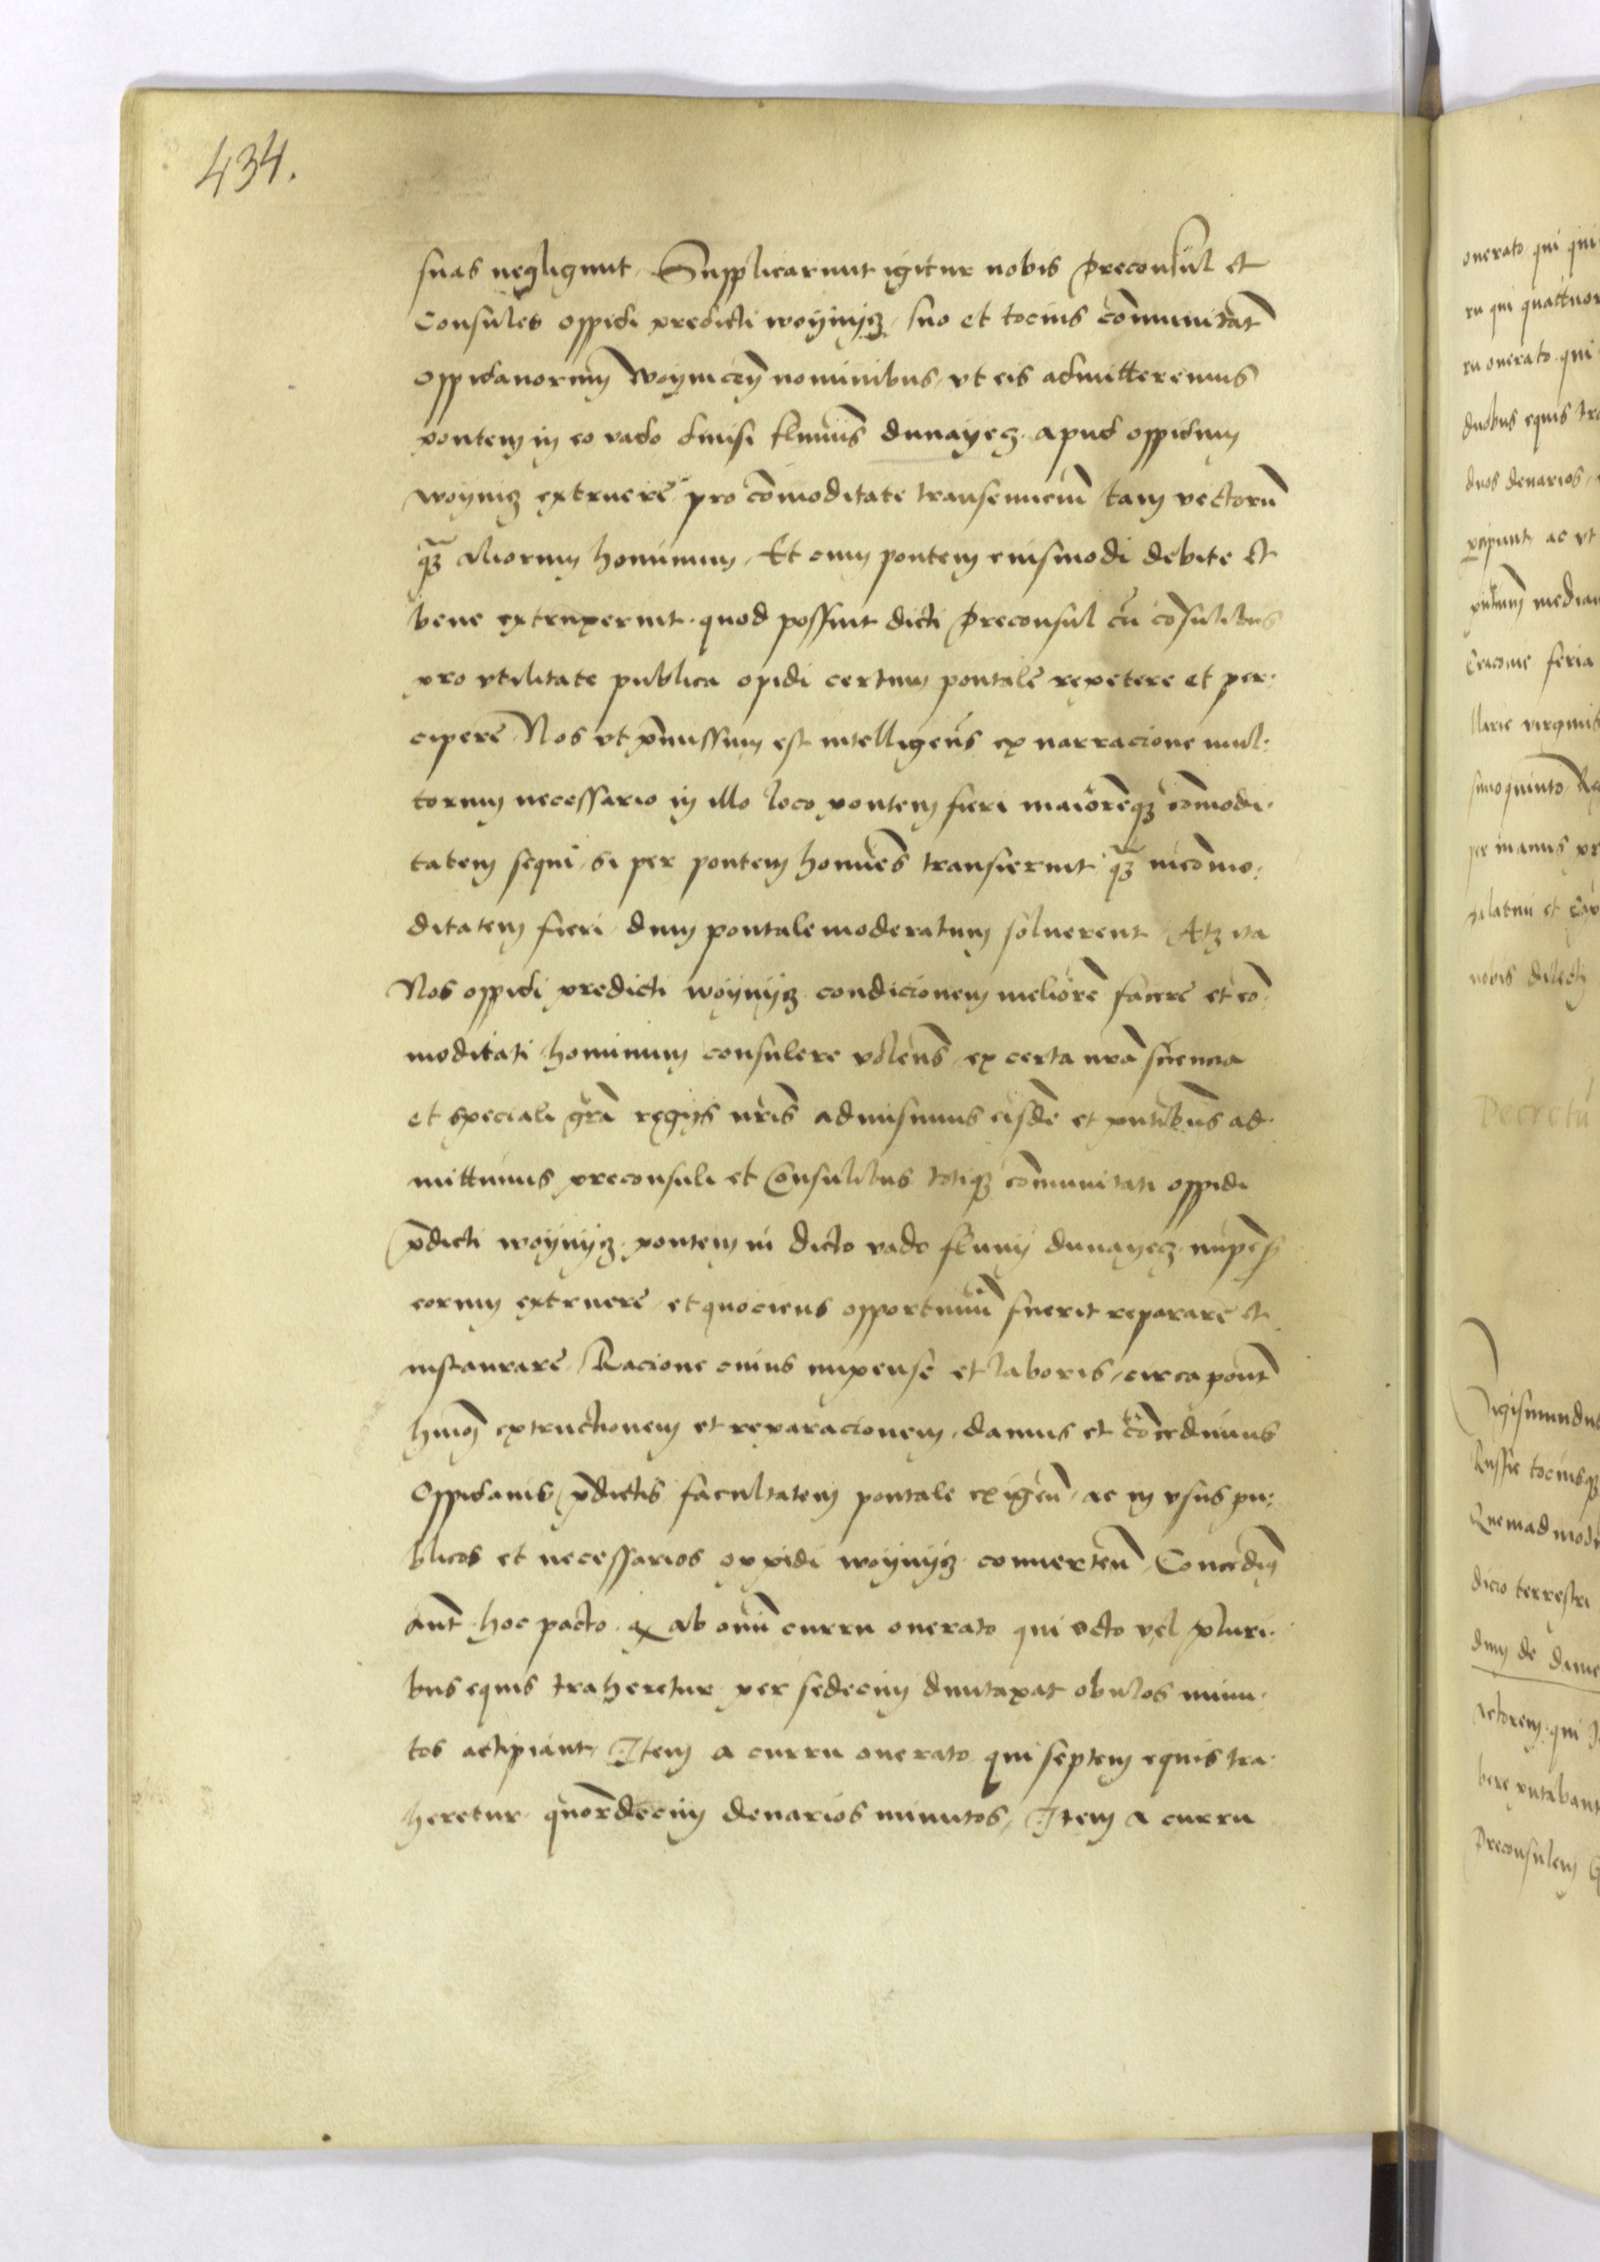 434.
suas negligunt. Supplicarunt igitur nobis Preconsul et
Consules oppidi predicti woÿnÿcz, suo et tocius cōmunitat̄
Oppidanorum Woynicen̄ nominibus, vt eis admitteremus
pontem in eo vado fluuii dunayecz. apud oppidum
woynicz extruerē pro cōmoditate transeunciū tam vectorū
q̄ȝ aliorum hominum, Et cum pontem eiusmodi debite et
bene extruxerint. quod possint dicti Preconsul cū cōsulibus
pro vtilitate publica opidi certum pontalē repetere et per-
cipere. Nos vt p̄missum est intelligen̄s ex narracione mul-
torum necessario in illo loco pontem fieri maiorēqȝ cōmodi-
tatem sequi, si per pontem homīes transierint q̄ȝ incōmo-
ditatem fieri, dum pontale moderatum soluerent, Atqȝ ita
Nos oppidi predicti woÿnÿcz condicionem meliorē facere et cō-
moditati hominum consulere volen̄s, ex certa nrā sciencia
et speciali grā regijs nrīs admisimus eisdē et pn̄tibus ad-
mittimus preconsuli et Consulibus totiqȝ cōmunitati oppidi
p̄dicti woÿnÿcz. pontem in dicto vado fluuij dunayecz. impēs̄
eorum extruerē, et quociens opportunū fuerit repararē et
instaurarē, Racione cuius impense et laboris, circa pont̄
hmōi extructionem et reparacionem, damus et cōcedimus
Oppidanis p̄dictis facultatem pontale exigen̄, ac in vsus pu-
blicos et necessarios oppidi woÿnÿcz. conuerten̄, Concedim̄
aūt hoc pacto. q̄ ab omī curru onerato qui octo vel pluri-
bus equis traheretur per sedecim dumtaxat obulos minu-
tos accipiant, Item a curru onerato qui septem equis tra-
heretur quordecim denarios minutos, Item a curru
onerato qui
duobus equis
duos denarios
ac vt
feria
Marie virginis
per manus
nobis dilecti
Decretū
Sigismundus
Russie tociusqȝ
dicio terrestri
Preconsulem